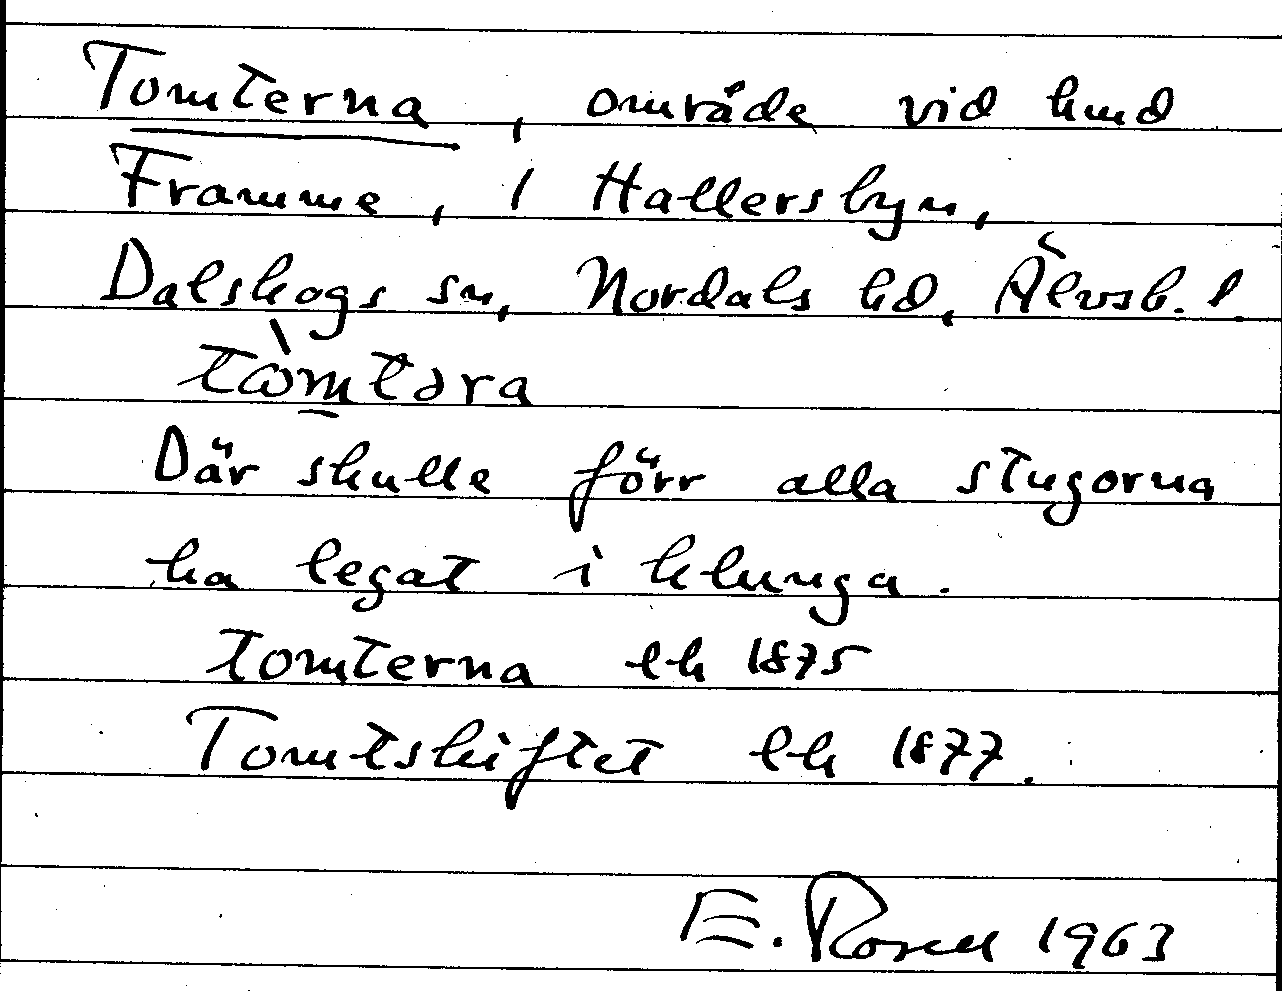 Tomterna, område vid hmd
Framme, 1 Hallersbyn,
Dalskogs sn, Nordals hd, Älvsb. l.
tòmtəra
Där skulle förr alla stugorna
ha legat i klunga.
tomterna lk 1875
Tomtskiftet lk 1877.
E. Rosell 1963